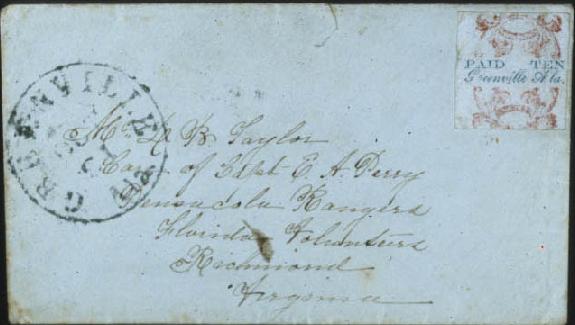 PAID TEN
Greenville Ala.
GREENVILLE
Mr. W B Taylor
Care of Capt E A Perry
Pensacola Rangers
Florida Volunteers
Richmond
Virginia